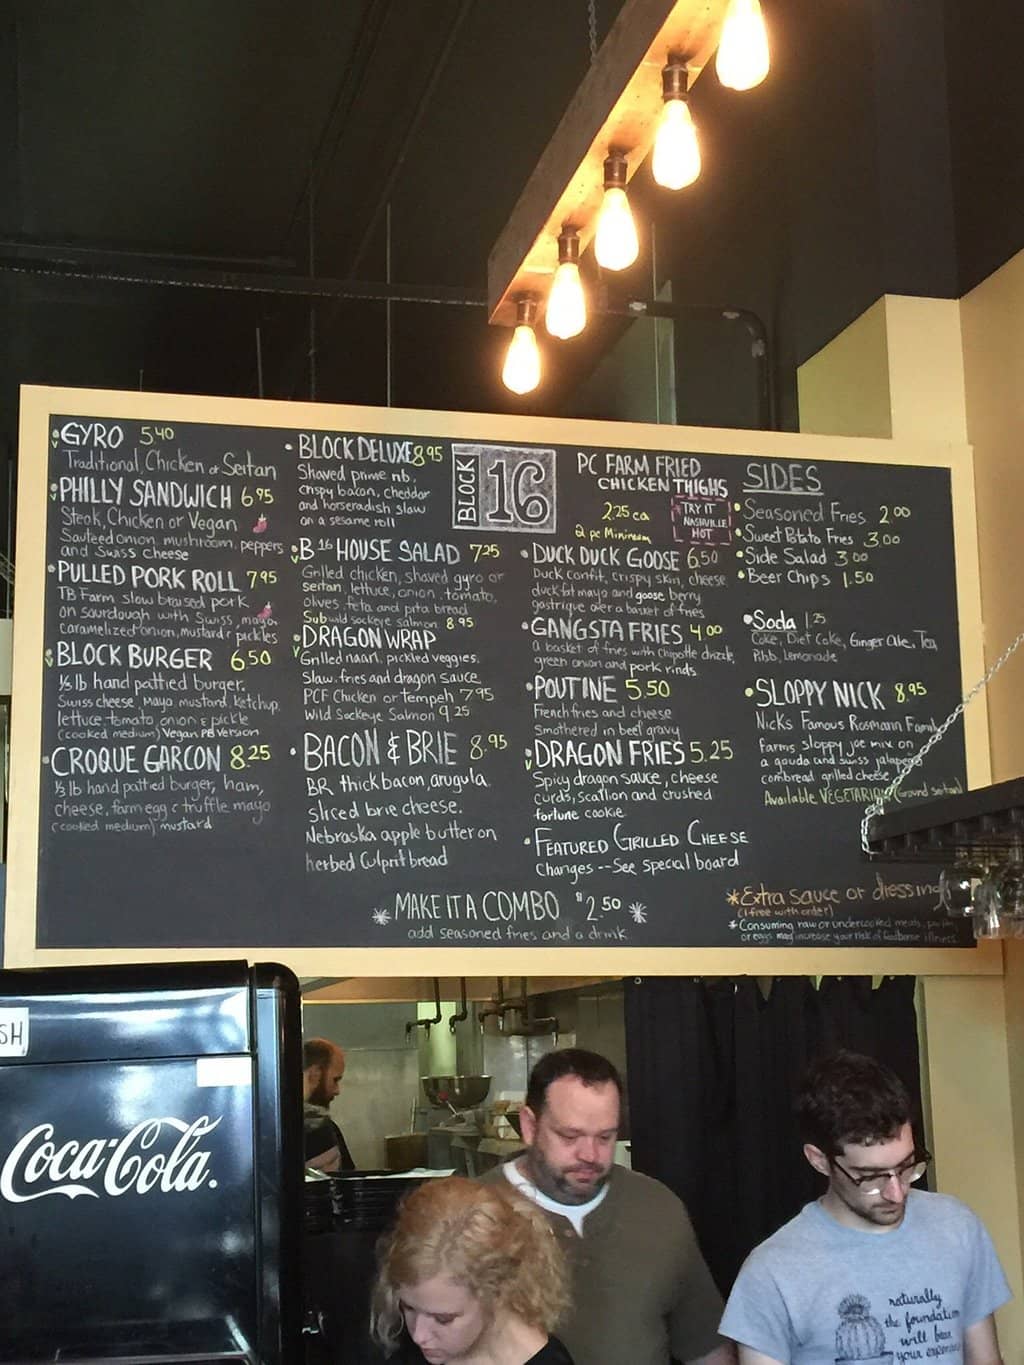 GYRO 5.40
Traditional, Chicken or Seitan
PHILLY SANDWICH 6.95
Steak, Chicken or Vegan
Sauteed onion, mushroom, peppers
and Swiss cheese
PULLED PORK ROLL 7.95
TB Farm slow braised pork
on sourdough with Swiss, mayo,
caramelized onion, mustard & pickles
BLOCK BURGER 6.50
1/3 lb hand pattied burger.
Swiss cheese, Mayo, mustard, ketchup,
lettuce, tomato, onion & pickle
(cooked medium) Vegan PB version
CROQUE GARCON 8.25
1/3 lb hand pattied burger, ham,
cheese, farm egg & truffle mayo
(cooked medium) mustard
BLOCK DELUXE 8.95
Shaved prime rib,
crispy bacon, cheddar
and horseradish slaw
on a sesame roll
B16 HOUSE SALAD 7.25
Grilled chicken, shaved gyro or
seitan, lettuce, onion, tomato,
olives, feta and pita bread
Sub wild sockeye salmon 8.95
DRAGON WRAP
Grilled naan, pickled veggies,
Slaw, fries and dragon sauce
PCF Chicken or tempeh 7.95
Wild Sockeye Salmon 9.25
BACON & BRIE 8.95
BR thick bacon, arugula,
sliced brie cheese,
Nebraska apple butter on
herbed Culprit bread
BLOCK 16
PC FARM FRIED
CHICKEN THIGHS
2.25 ea
2 pc Minimum
TRY IT
NASHVILLE
HOT
DUCK DUCK GOOSE 6.50
Duck confit, crispy skin, cheese,
duck fat mayo and goose berry
gastrique over a basket of fries
GANGSTA FRIES 4.00
a basket of fries with chipotle drizzle,
green onion and pork rinds
POUTINE 5.50
French fries and cheese
Smothered in beef gravy
DRAGON FRIES 5.25
Spicy dragon sauce, cheese
curds, scallion and crushed
fortune cookie
FEATURED GRILLED CHEESE
Changes -- See special board
SIDES
Seasoned Fries 2.00
Sweet Potato Fries 3.00
Side Salad 3.00
Beer Chips 1.50
Soda 1.25
Coke, Diet Coke, Ginger Ale, Tea,
Pibb, Lemonade
SLOPPY NICK 8.95
Nicks Famous Rosmann Family
Farms sloppy joe mix on
a gouda and swiss jalapeno
cornbread grilled cheese
Available VEGETARIAN (Ground seitan)
* MAKE IT A COMBO $2.50 *
add seasoned fries and a drink
*Extra sauce or dressing
(1 free with order)
*Consuming raw or undercooked meats,
or eggs may increase your risk of foodborne illness.
SH
Coca-Cola
naturally
the foundation
will bear
your expenses